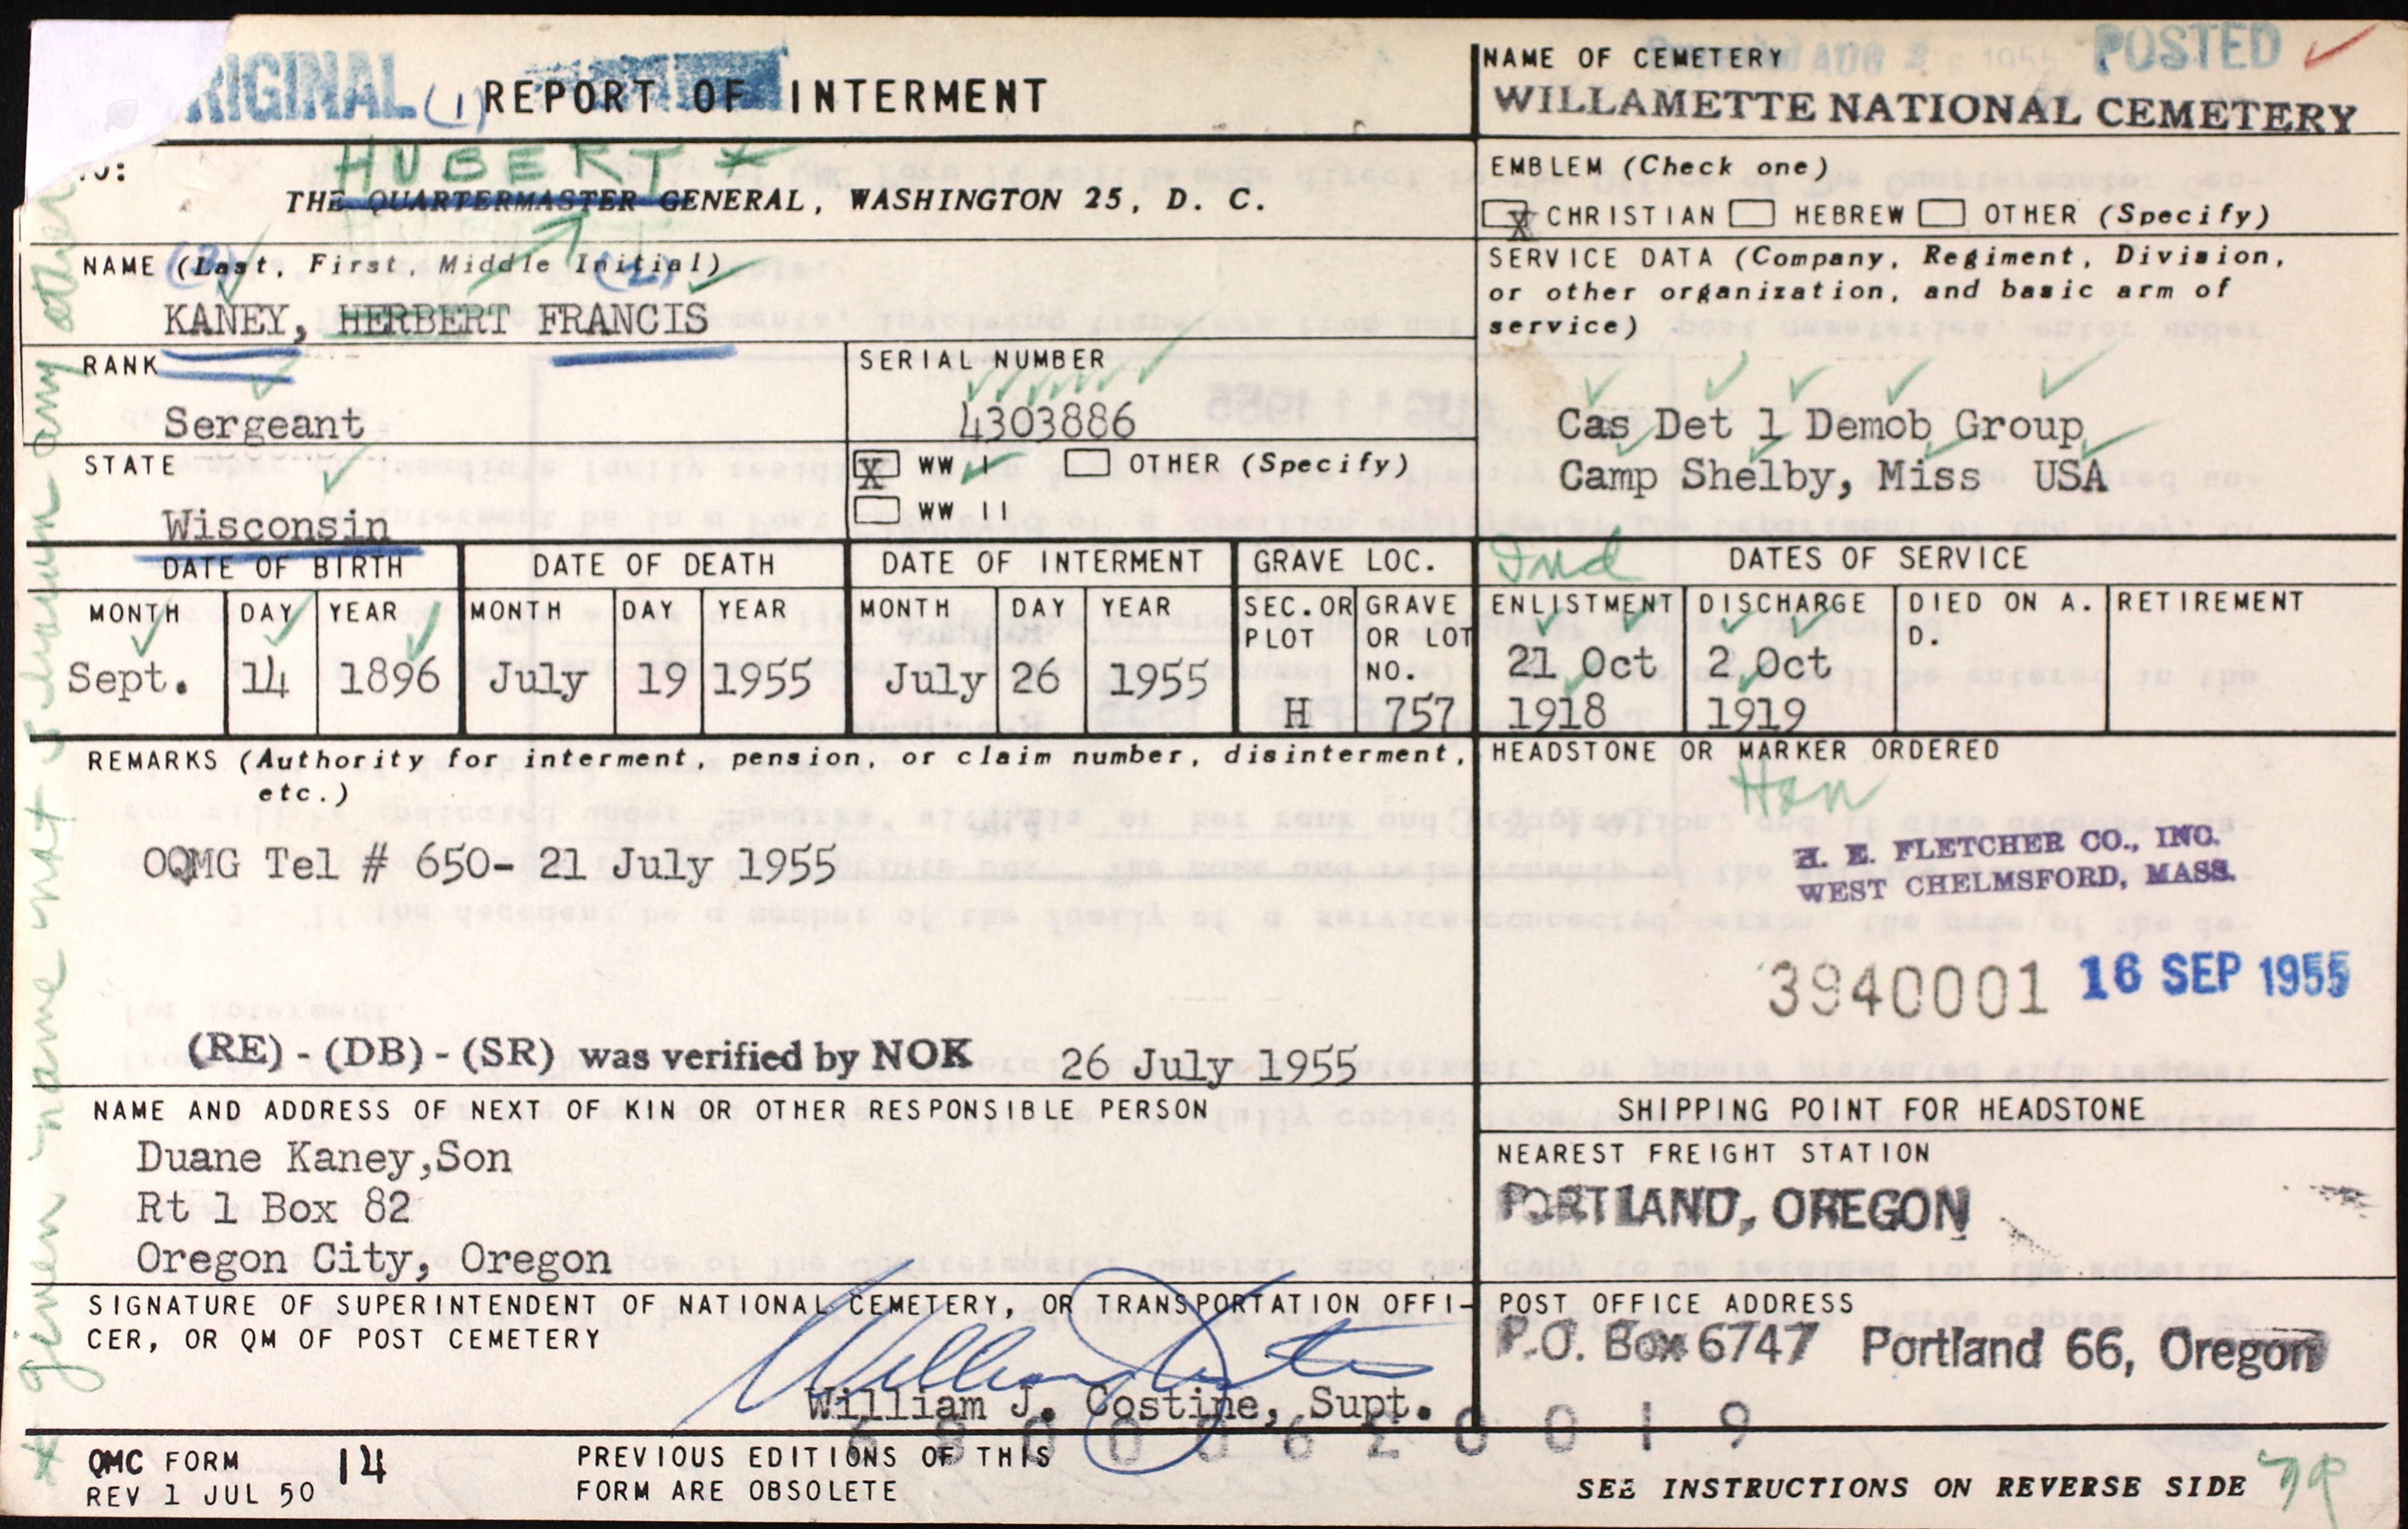 RIGINAL (1) REPORT OF INTERMENT
NAME OF CEMETERY
AUG 1955 POSTED
WILLAMETTE NATIONAL CEMETERY
HUBERT *
THE QUARTERMASTER GENERAL, WASHINGTON 25, D. C.
EMBLEM (Check one)
X CHRISTIAN HEBREW OTHER (Specify)
NAME (Last, First, Middle Initial)
(3) (2)
KANEY, HERBERT FRANCIS
SERVICE DATA (Company, Regiment, Division,
or other organization, and basic arm of
service)
Cas Det 1 Demob Group
Camp Shelby, Miss USA
RANK
Sergeant
SERIAL NUMBER
4303886
STATE
Wisconsin
X WW I OTHER (Specify)
WW II
DATE OF BIRTH
MONTH DAY YEAR
Sept. 14 1896
DATE OF DEATH
MONTH DAY YEAR
July 19 1955
DATE OF INTERMENT
MONTH DAY YEAR
July 26 1955
GRAVE LOC.
SEC. OR PLOT
H
GRAVE OR LOT NO.
757
Ind DATES OF SERVICE
ENLISTMENT
21 Oct
1918
DISCHARGE
2 Oct
1919
DIED ON A.
D.
RETIREMENT
REMARKS (Authority for interment, pension, or claim number, disinterment,
etc.)
OQMG Tel # 650- 21 July 1955
(RE) - (DB) - (SR) was verified by NOK 26 July 1955
HEADSTONE OR MARKER ORDERED
Hon
H. E. FLETCHER CO., INC.
WEST CHELMSFORD, MASS.
3940001 16 SEP 1955
NAME AND ADDRESS OF NEXT OF KIN OR OTHER RESPONSIBLE PERSON
Duane Kaney,Son
Rt 1 Box 82
Oregon City, Oregon
SHIPPING POINT FOR HEADSTONE
NEAREST FREIGHT STATION
PORTLAND, OREGON
SIGNATURE OF SUPERINTENDENT OF NATIONAL CEMETERY, OR TRANSPORTATION OFFI-
CER, OR QM OF POST CEMETERY
William J. Costine, Supt.
POST OFFICE ADDRESS
P.O. Box 6747 Portland 66, Oregon
QMC FORM 14
REV 1 JUL 50
PREVIOUS EDITIONS OF THIS
FORM ARE OBSOLETE
SEE INSTRUCTIONS ON REVERSE SIDE
* given name not shown any other